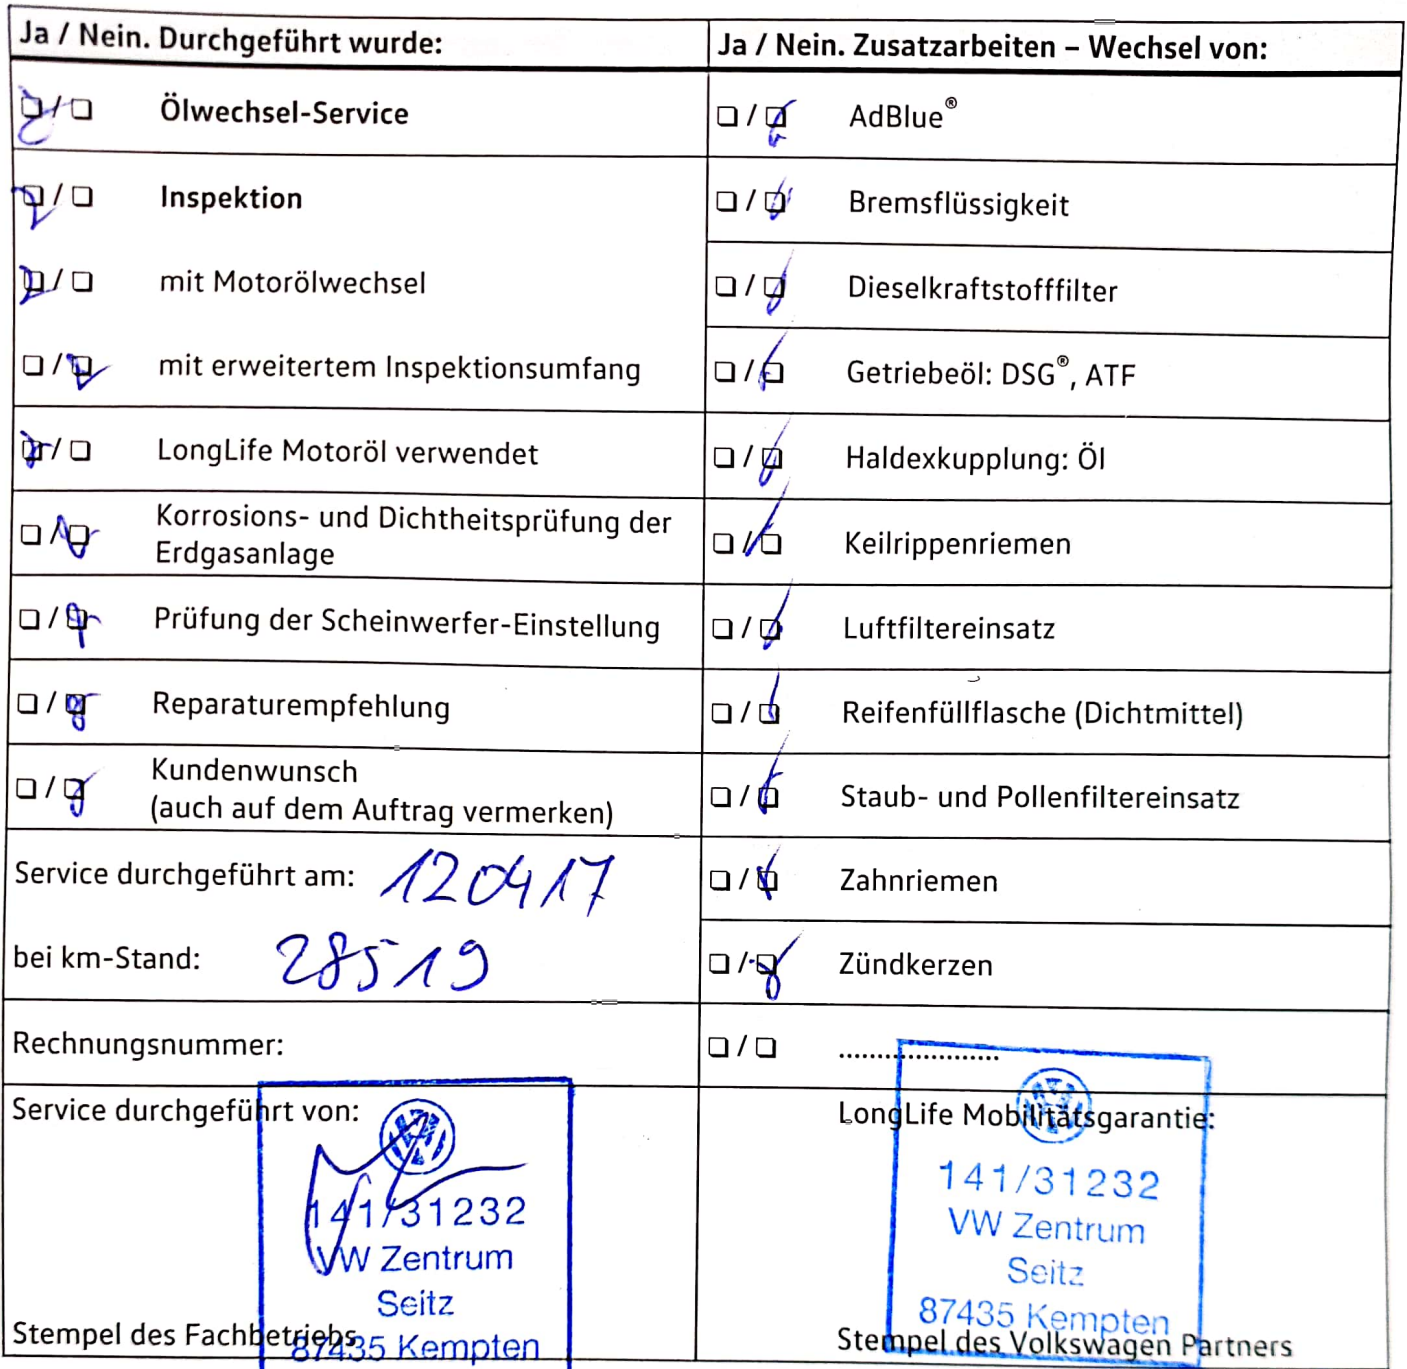 Ja / Nein. Durchgeführt wurde:
Ölwechsel-Service
Inspektion
mit Motorölwechsel
mit erweitertem Inspektionsumfang
LongLife Motoröl verwendet
Korrosions- und Dichtheitsprüfung der
Erdgasanlage
Prüfung der Scheinwerfer-Einstellung
Reparaturempfehlung
Kundenwunsch
(auch auf dem Auftrag vermerken)
Service durchgeführt am: 120417
bei km-Stand: 28519
Rechnungsnummer:
Service durchgeführt von:
141/31232
VW Zentrum
Seitz
87435 Kempten
Stempel des Fachbetriebs
Ja / Nein. Zusatzarbeiten – Wechsel von:
AdBlue®
Bremsflüssigkeit
Dieselkraftstofffilter
Getriebeöl: DSG®, ATF
Haldexkupplung: Öl
Keilrippenriemen
Luftfiltereinsatz
Reifenfüllflasche (Dichtmittel)
Staub- und Pollenfiltereinsatz
Zahnriemen
Zündkerzen
.....................
LongLife Mobilitätsgarantie:
141/31232
VW Zentrum
Seitz
87435 Kempten
Stempel des Volkswagen Partners